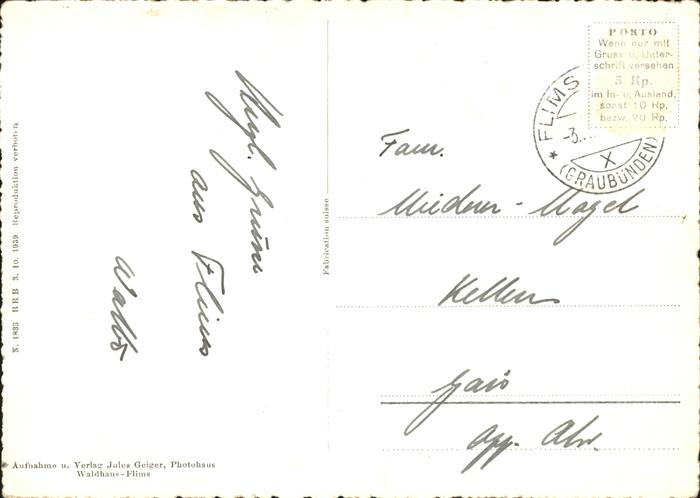 Hrzl. Grüsse
aus Flims
K. 1833 BRB 3. 10. 1939 Reproduktion verboten
Aufnahme u. Verlag Jules Geiger, Photohaus
Waldhaus-Flims
Fabrication suisse
PORTO
Wenn nur mit
Gruss u. Unter-
schrift versehen
5 Rp.
im In- u. Ausland,
sonst 10 Rp.
bezw. 20 Rp.
FLIMS
-3.
X
(GRAUBÜNDEN)
Fam.
Gais
App.